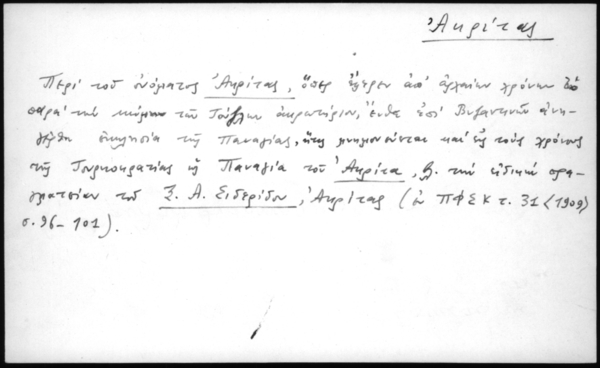 Ἀκρίτας
Περί τοῦ ὀνόματος Ἀκρίτας, ὅπερ ἔφερεν ἀπ' ἀρχαίων χρόνων τὸ
παρά τήν κώμην τῶν Τούζλων ἀκρωτήριον, ἔνθα ἐπί Βυζαντινῶν ἀνη-
γέρθη ἐκκλησία τῆς Παναγίας, ἥτις μνημονεύεται καί εἰς τούς χρόνους
τῆς Τουρκοκρατίας ὡς Παναγία τοῦ Ἀκρίτα, β. τήν εἰδικήν πρα-
γματείαν τοῦ Ξ. Α. Σιδερίδου, Ἀκρίτας (ἐν ΠΦΣΚ τ. 31 <1909)
σ. 96-101).